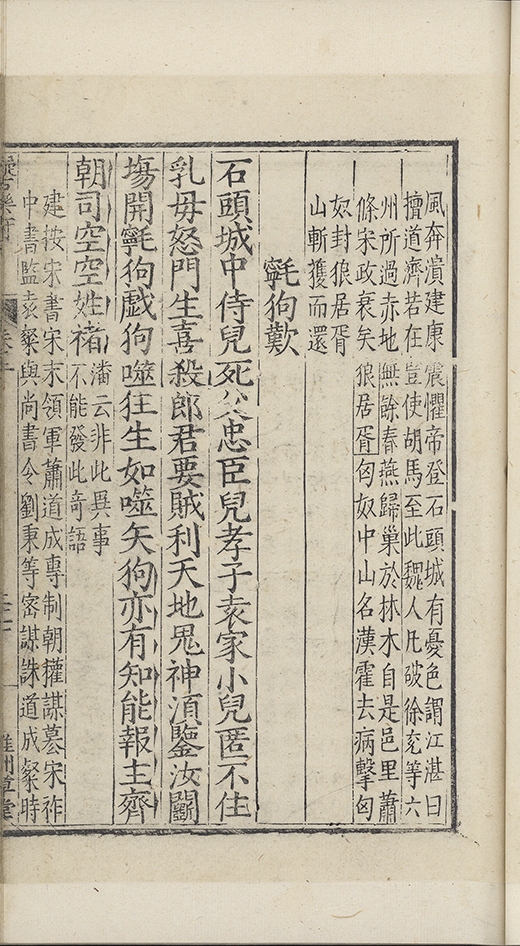 風奔潰建康震懼帝登石頭城有憂色謂江湛曰
擅道濟若在豈使胡馬至此魏人凡破徐兖等六
州所過赤地無餘春燕歸巢於林木自是邑里蕭
條宋政衰矣狼居胥匈奴中山名漢霍去病擊匈
奴封狼居胥
山斬獲而還
氄狗歎
石頭城中侍兒死父忠臣兒孝子袁家小兒匿不住
乳母怒門生喜殺郎君要賊利天地鬼神湏鑒汝闘
塲開氄狗戯狗噬狂生如噬矢狗亦有知能報主齊
朝司空空姓褚
潘云非此異事
不能發此竒語
建按宋書宋末領軍蕭道成專制朝權謀墓宋祚
中書監袁粲與尚書令劉秉等密謀誅道成粲時